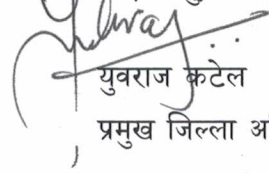 युवराज कटेल
प्रमुख जिल्ला अ